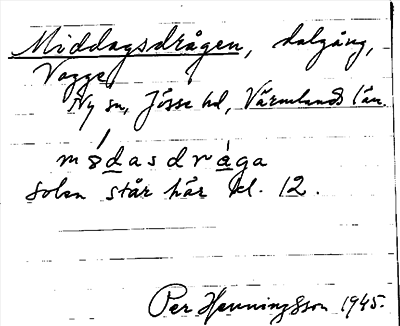 Middagsdrågen, dalgång,
Vagge
Ny sn, Jösse hd, Värmlands län.
médasdråga
solen står här kl. 12.
Per Henningsson 1945.